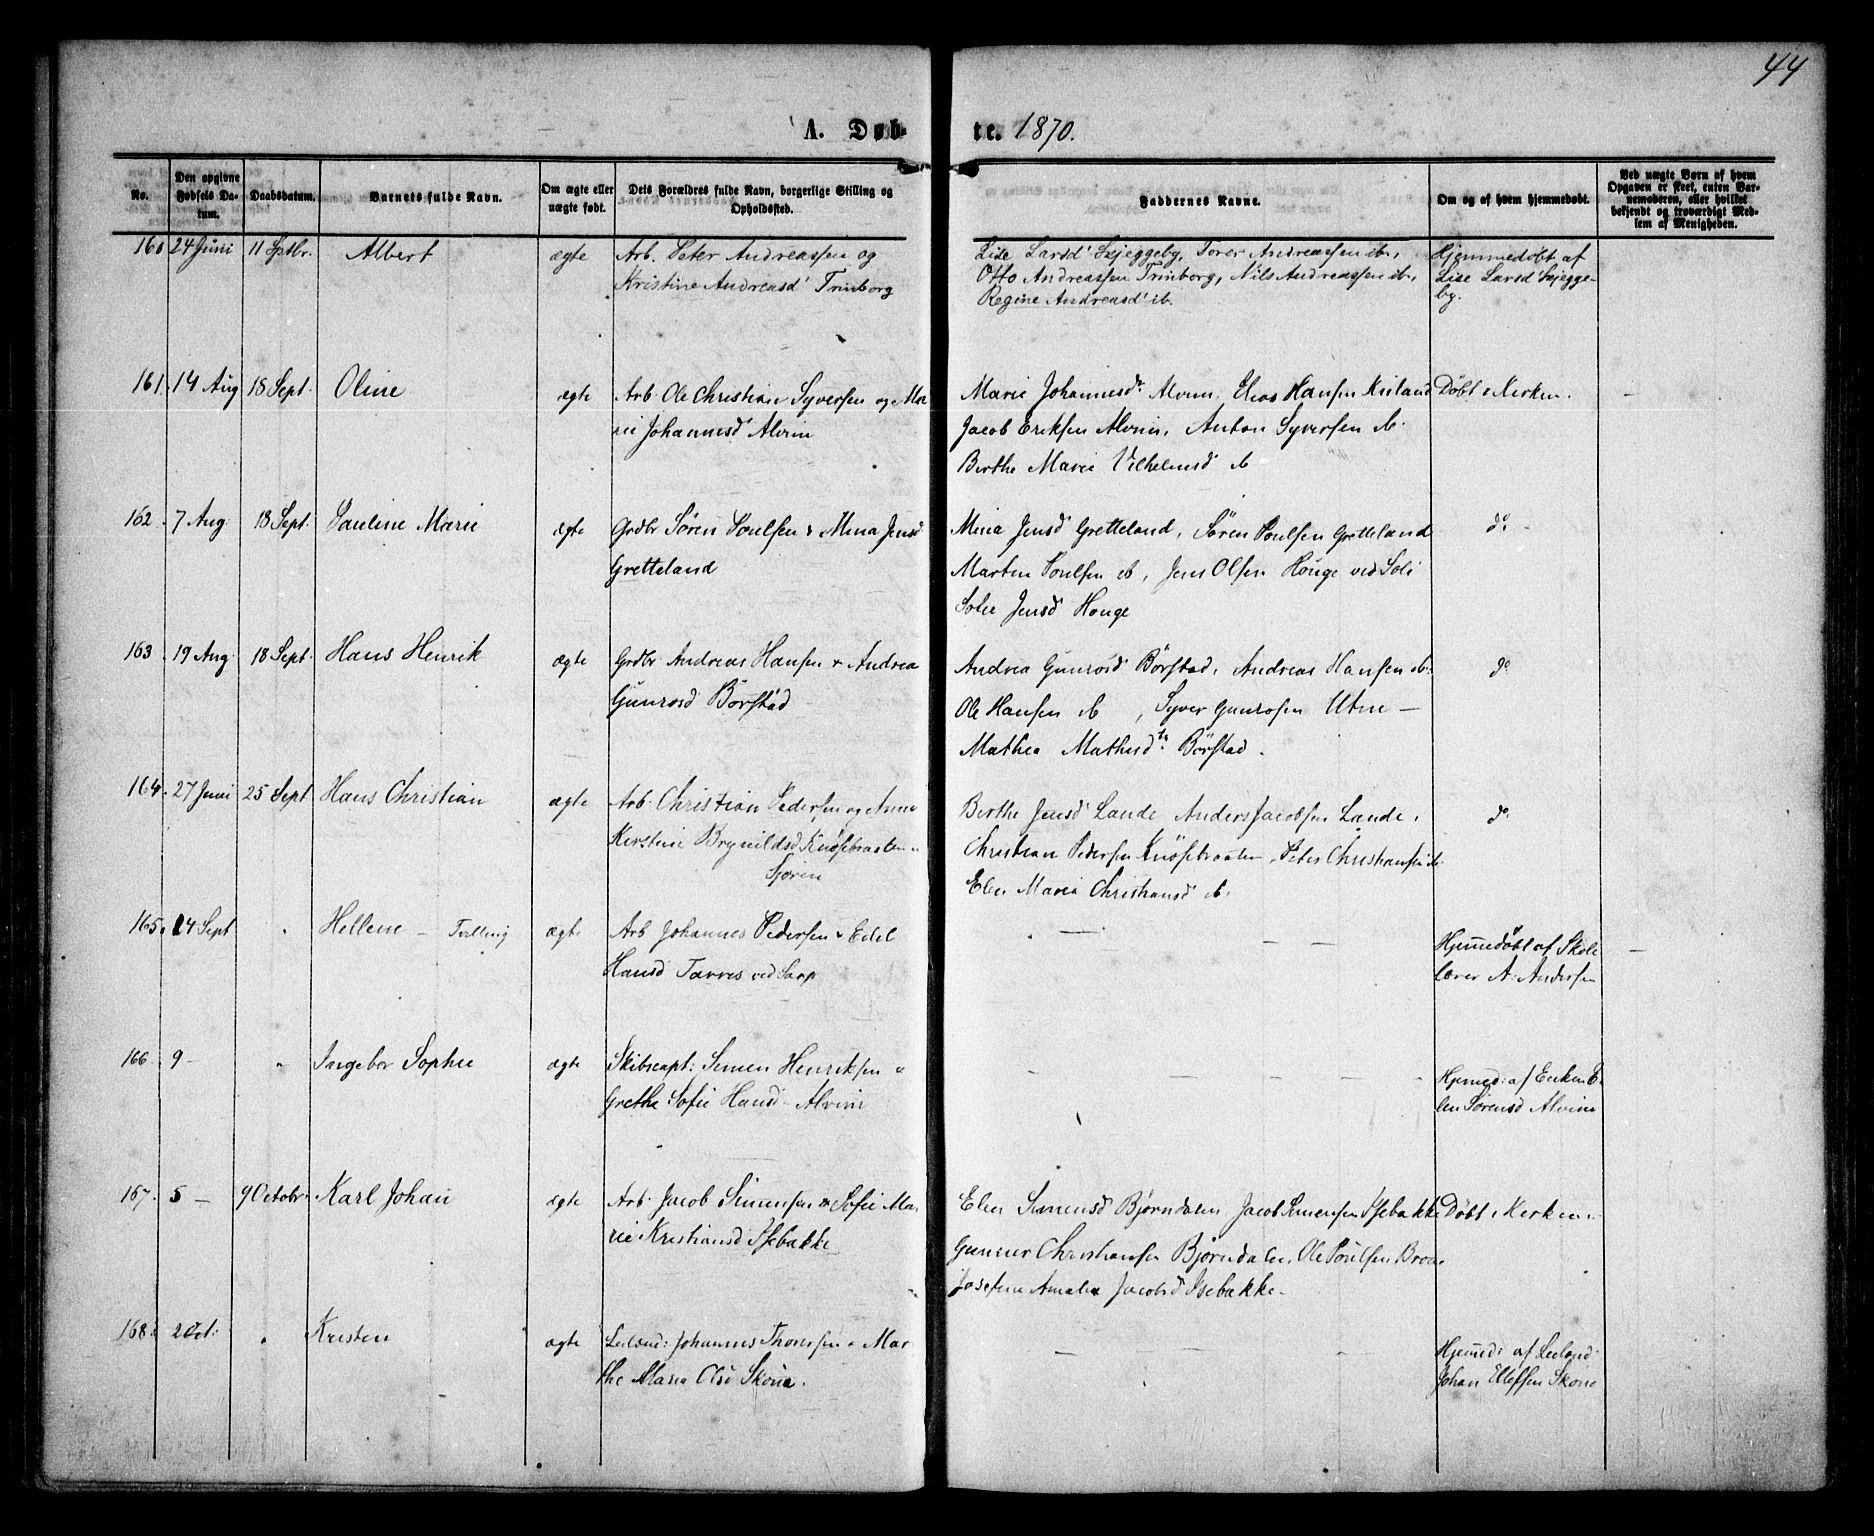 44
A. Døb- te. 1870.
No. | Den opgivne Fødsels Datum. | Daabsdatum. | Barnets fulde Navn. | Om ægte eller uægte født. | Dets Forældres fulde Navn, borgerlige Stilling og Opholdssted. | Faddernes Navne. | Om og af hvem hjemmedøbt. | Ved uægte Børn af hvem Opgaven er skeet, enten Barnemoderen, eller hvilket bekjendt og troværdigt Medlem af Menigheden.
160 24 Juni 11 Sptbr. Albert ægte Arb. Peter Andreassen og
Kristine Andreasd' Trinborg
Lise Larsd' Skjeggeby, Torer Andreassen ib.,
Otto Andreassen Trinborg, Nils Andreassen ib.,
Regine Andreasd' ib.
Hjemmedøbt af
Lise Larsd Skjegge-
by.
161. 14 Aug 18 Sept. Oline ægte Arb. Ole Christian Syversen og Ma-
rie Johannesd Alvim
Marie Johannesdr Alvim, Elias Hansen
Jacob Eriksen Alvim, Anton Syversen ib.
Berthe Marie Vilhelmsd ib
Døbt i Kirken.
162. 7 Aug. 18 Sept. Pauline Marie ægte Grdbr Søren Poulsen & Mina Jensd
Gretteland
Mina Jensd Gretteland, Søren Poulsen Gretteland
Marten Poulsen ib, Jens Olsen Houge ved Soli
Sofie Jensd Houge
do
163. 19 Aug. 18 Sept. Hans Henrik ægte Grdbr Andreas Hansen & Andrea
Gunrosd Børstad
Andrea Gunrosd Børstad, Andreas Hansen ib.
Ole Hansen ib, Syver Gunrosen Utne –
Mathea Mathisdtr. Børstad.
do
164. 27 Juni 25 Sept Hans Christian ægte Arb. Christian Pedersen og Anne
Kirstine Brynildsd Knøsebraaten
Sjøren
Berthe Jensd Lande, Anders Jacobsen Lande,
Christian Pedersen Knøsebraaten, Peter Christiansen ib.
Elen Maria Christiansd ib.
do
165. 14 Sept " Hellene – Tvilling ægte Arb Johannes Pedersen & Edel
Hansd Tarves ved Sarp
– –
Hjemmedøbt af Skole
lærer A. Andersen
–
166. 9 – " Ingebor Sophie ægte Skibscapt: Simen Henriksen &
Grethe Sofie Hansd Alvim
– – – –
Hjemmed: af Enken E-
len Sørensd Alvim
167. 5 – 9 Octobr. Karl Johan ægte Arb. Jacob Simensen & Sofie Ma-
rie Kristiansd Isebakke
Elen Simensd Bjørndalen Jacob Simensen Isebakke
Gunner Christiansen Bjørndalen, Ole Poulsen
Josefine Amalie Jacobsd Isebakke.
Døbt i Kirken.
168. 2 Oct. " Kristen ægte Leilænd: Johannes Thoresen & Mar-
the Maria Olsd Skone.
– – – –
Hjemmed: af Leilænd
Johan Ellefsen Skone